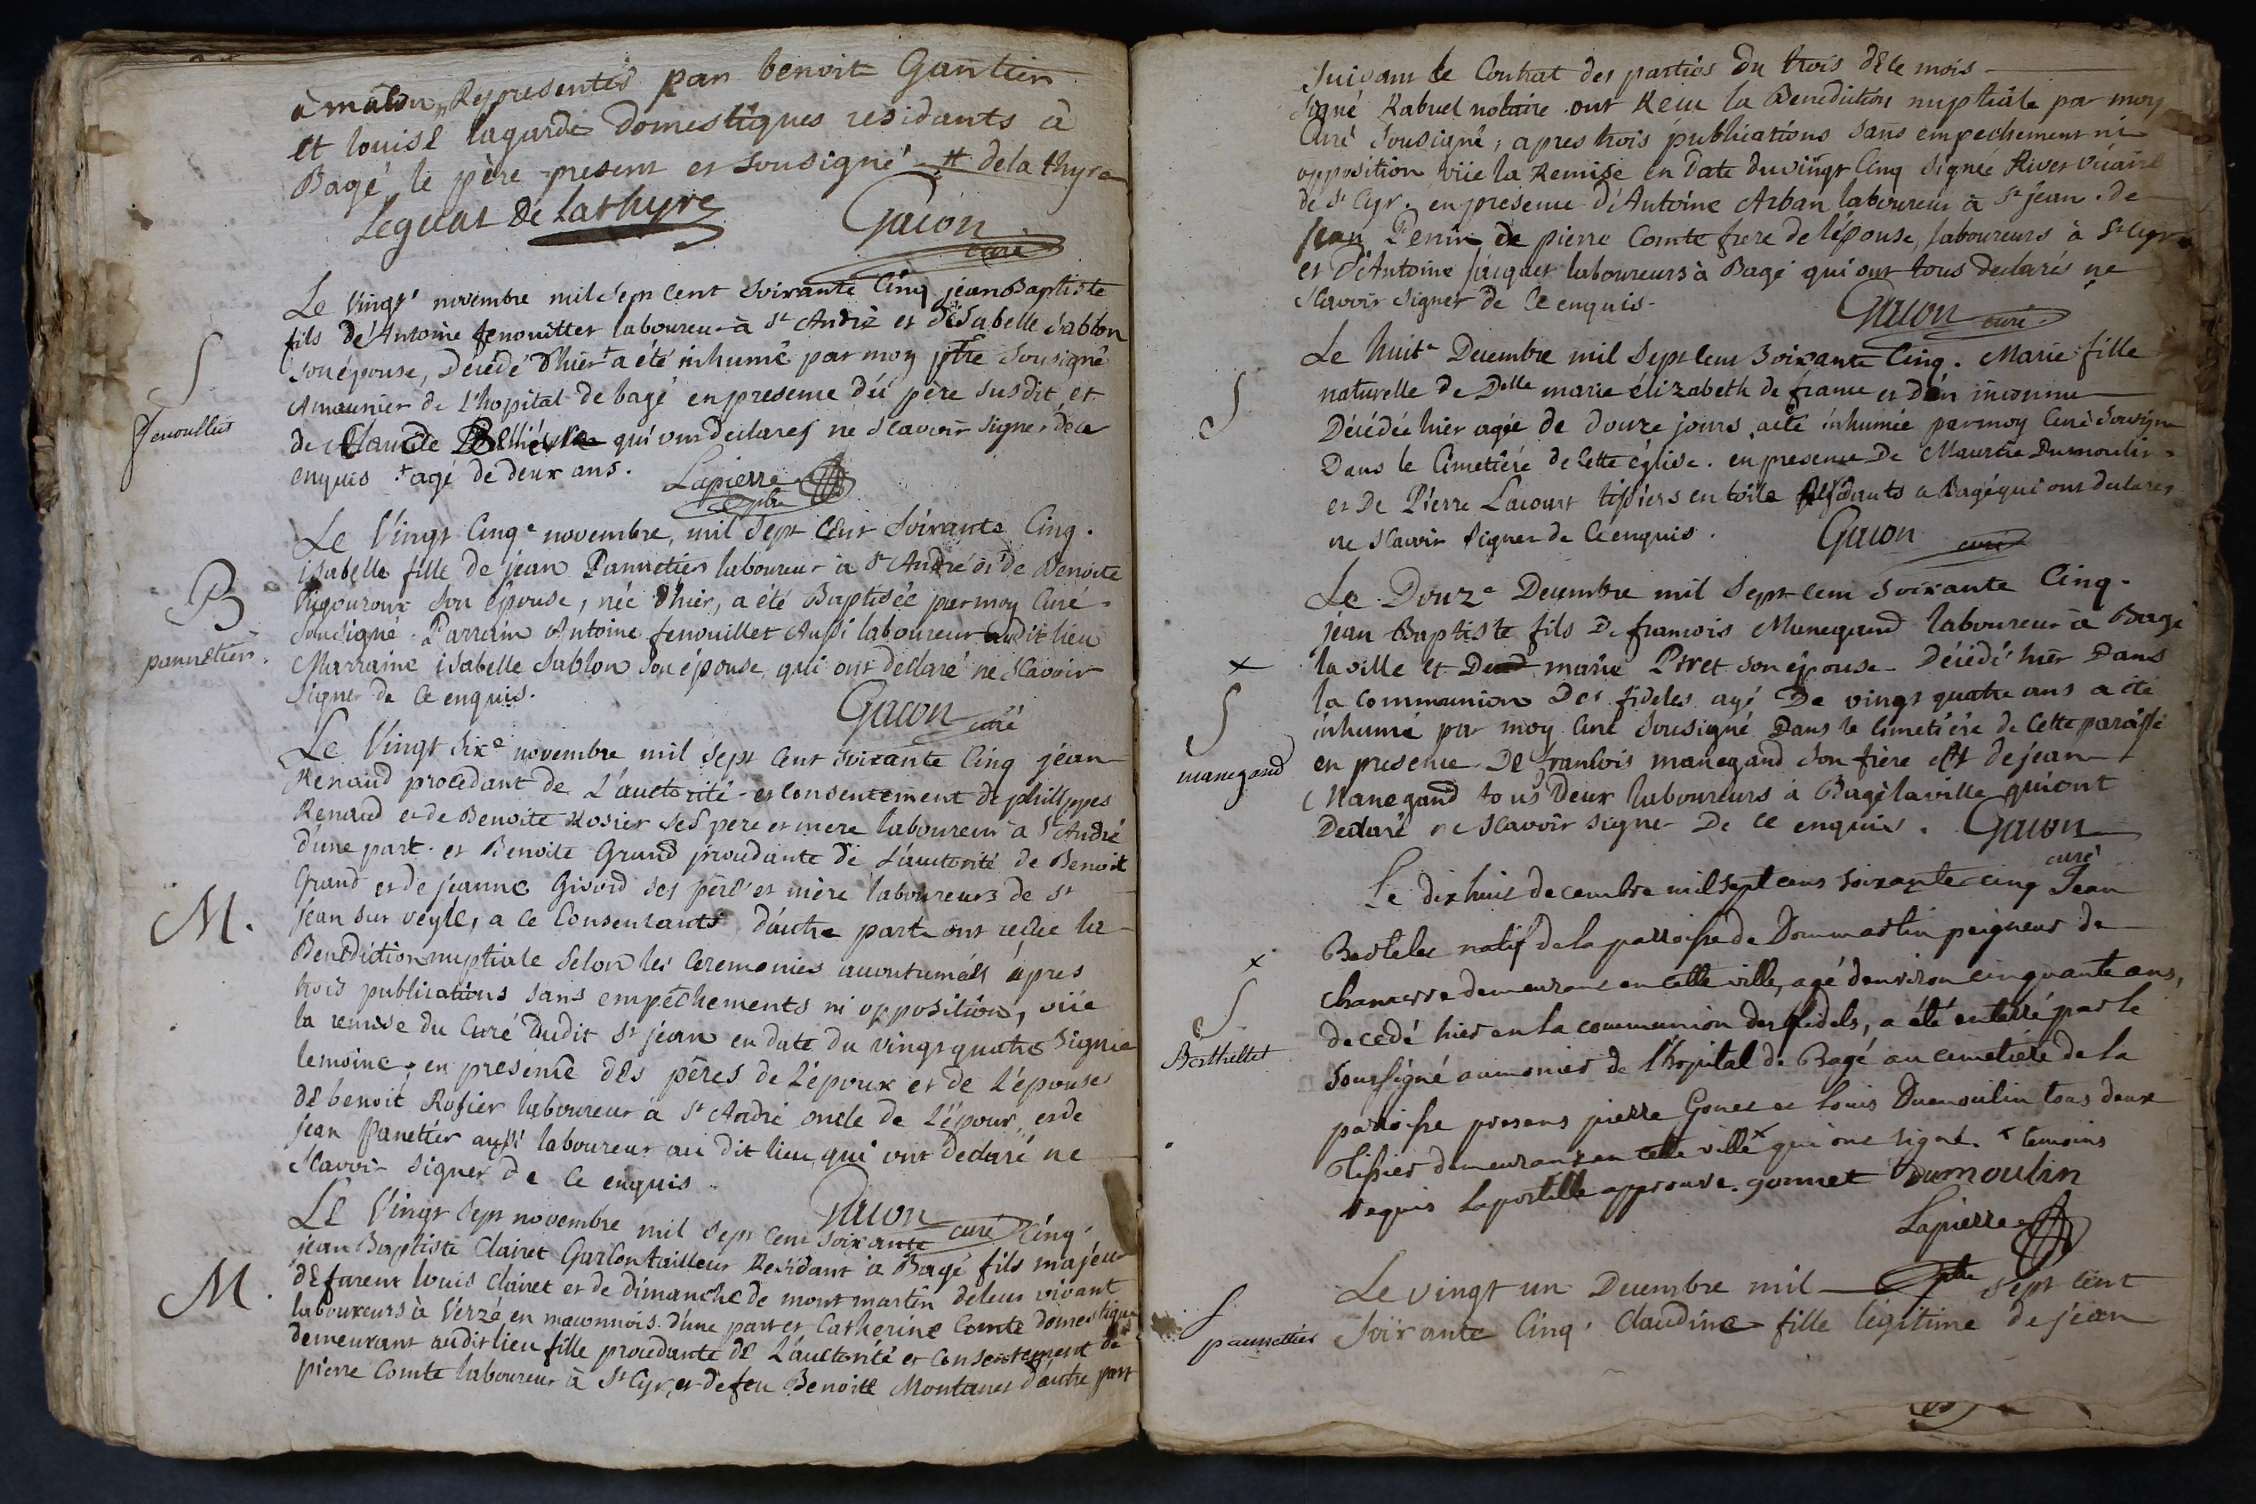 à mâcon, Representés par benoit Gantier
et louise lagarde domestiques residants à
Bagé le père present et sousigné # de la thyre
Leguat de lathyre Gacon
curé
Le Vingt novembre mil sept cent soixante Cinq jean Baptiste
fils de Antoine fenouillet laboureur à St André et disabelle Sablon
son épouse, Decedé d'hier + a été inhumé par moy ptre sousigné
Amounier de l'hopital de bagé en presence du père susdit et
de Claude qui ont declarés ne scavoir signer de ce
enquis + agé de deux ans. Lapierre
ptre
fenoullet
S
Le Vingt Cinqe novembre, mil sept cent soixante Cinq.
isabelle fille de jean Pannetier laboureur à St André et de Benoite
Vigouroux son épouse, née d'hier, a été Baptisée par moy curé
sousigné. Parrain Antoine fenouillet aussi laboureur audit lieu
Marraine isabelle Sablon son épouse qui ont declaré ne scavoir
signer de ce enquis.
Gacon curé
B
pannetier.
Le Vingt Sixe novembre mil sept cent soixante Cinq jean
Renaud procedant de L'auctorité et consentement de philippes
Renaud et de Benoite Rosier ses pere et mere laboureur à St André
d'une part. et Benoite Grand procedante de L'auctorité de Benoit
Grand et de jeanne Givord ses père et mère laboureurs de St
jean sur veyle, a ce Consentants d'autre part ont reçue la
Benediction nuptiale selon les Ceremonies accoutumées après
trois publications sans empêchements ni opposition, viie
la remise du Curé dudit St jean en date du vingt quatre signée
lemoine, en presence des pères de L'époux et de L'épouse
de benoit Rosier laboureur à St André oncle de L'époux, et de
jean Panetier aussi laboureur au dit lieu qui ont declaré ne
scavoir signer de ce enquis.
Gacon curé
M.
Le Vingt Sept novembre mil sept cent soixante Cinq.
jean Baptiste Clairet Garcon tailleur Residant à Bagé fils majeur
de furent louis Clairet et de dimanche de montmartin de leur vivant
laboureurs à Verzé en maconnois d'une part et Catherine Comte domestique
demeurant audit lieu fille procedante de L'auctorité et consentement de
pierre Comte laboureur à St Cyr, et de feu Benoite Montanet d'autre part
M.
Suivant le Contrat des parties du trois de ce mois
signé Rabuel notaire ont Recu la Benediction nuptiale par moy
Curé sousigné, apres trois publications sans empechement ni
opposition viie la Remise en Date du vingt Cinq signée River vicaire
de St Cyr. en presence d'Antoine Arban laboureur à St jean. de
jean Penin de pierre Comte frere de lépouse, laboureurs à St Cyr
et d'Antoine jacquet laboureurs à Bagé qui ont tous declarés ne
scavoir signer de Ce enquis.
Gacon curé.
Le huite Decembre mil Sept Cent Soixante Cinq. Marie fille
naturelle de Delle marie élizabeth de france et d'un inconnu
Décédée hier agée de douze jours a eté inhumée par moy Curé Sousigné
Dans le Cimetière de Cette église. en presence De Maurice Dumoulin
et De Pierre Lacourt tissiers en toile Residants a Bagé qui ont declarés
ne scavoir signer de Ce enquis.
Gacon curé
S
Le Douze Decembre mil Sept Cent Soixante Cinq.
jean Baptiste fils De francois Manegand laboureur à Bagé
la ville et De marie Piret son épouse. Décédé hier Dans
la Communion Des fideles agé De vingt quatre ans a eté
inhumé par moy Curé Sousigné Dans le Cimetière de Cette paroisse
en presence De francois manegand son frère et de jean
Manegand tous Deux laboureurs à Bagé la ville qui ont
Declaré ne scavoir signer De ce enquis. Gacon
curé
x
S
manegand
Le dix huit decembre mil sept cens soixante cinq Jean
Bertelet natif de la parroisse de Dommartin peigneur de
chanverre demeurant en cette ville, agé denviron cinquante ans,
decedé hier en la communion des fidels, a été enterré par le
soussigné aumonier de l'hopital de Bagé au cimetière de la
parroisse presens pierre Gonet et Louis Dumoulin tous deux
tissier demeurant en cette ville x qui ont signé. x temoins
requis Lapostille approuvé. gonnet Dumoulin
Lapierre
ptre
x
S
Berthellet
Le vingt un Decembre mil Sept Cent
Soixante Cinq. Claudine fille légitime de jean
S
pannetier